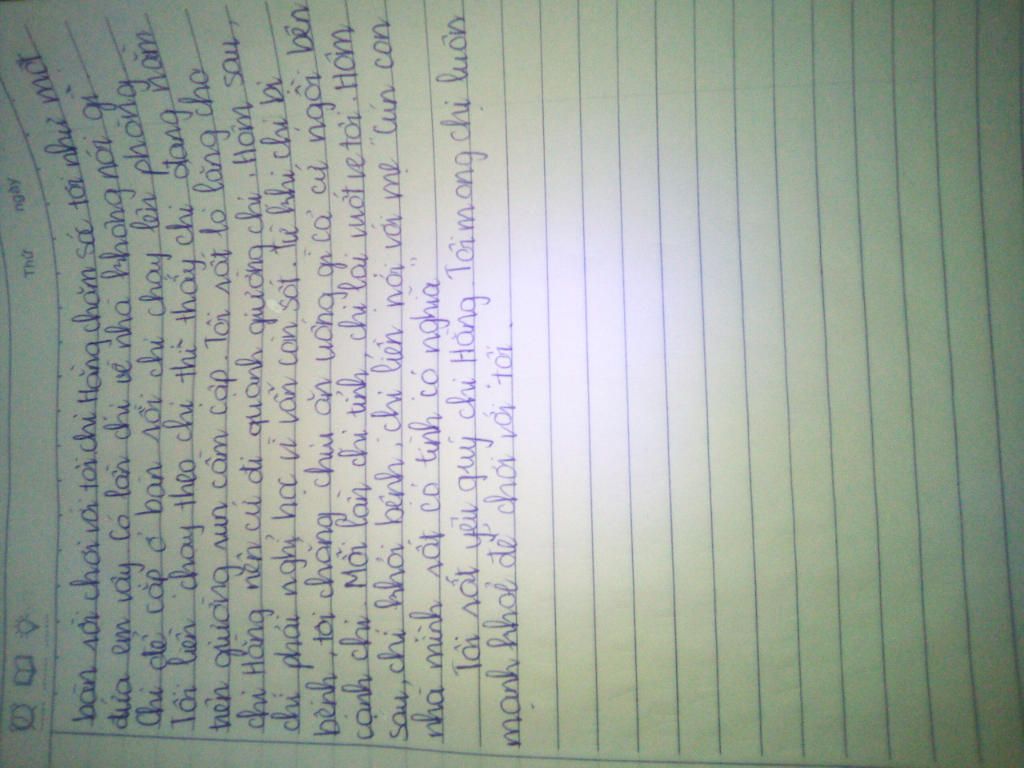 Thứ ngày
bàn rồi chơi với tôi chị Hồng chăm sóc tôi như một
đứa em vậy có lần chị về nhà không nói gì
Chị để cặp ở bàn rồi chị chạy lên phòng
Tôi liền chạy theo chị thì thấy chị đang nằm
trên giường run cầm cập. Tôi rất lo lắng cho
chị Hồng nên cứ đi quanh giường chị. Hôm sau,
chị phải nghỉ học vì vẫn còn sốt. Từ khi chị bị
bệnh, tôi chẳng chịu ăn uống gì cả cứ ngồi bên
cạnh chị. Mỗi lần chị tỉnh, chị lại vuốt ve tôi Hôm
sau, chị khỏi bệnh, chị liền nói với mẹ "Cún con
nhà mình rất có tình có nghĩa"
Tôi rất yêu quý chị Hồng. Tôi mong chị luôn
mạnh khhoẻ để chơi với tôi.